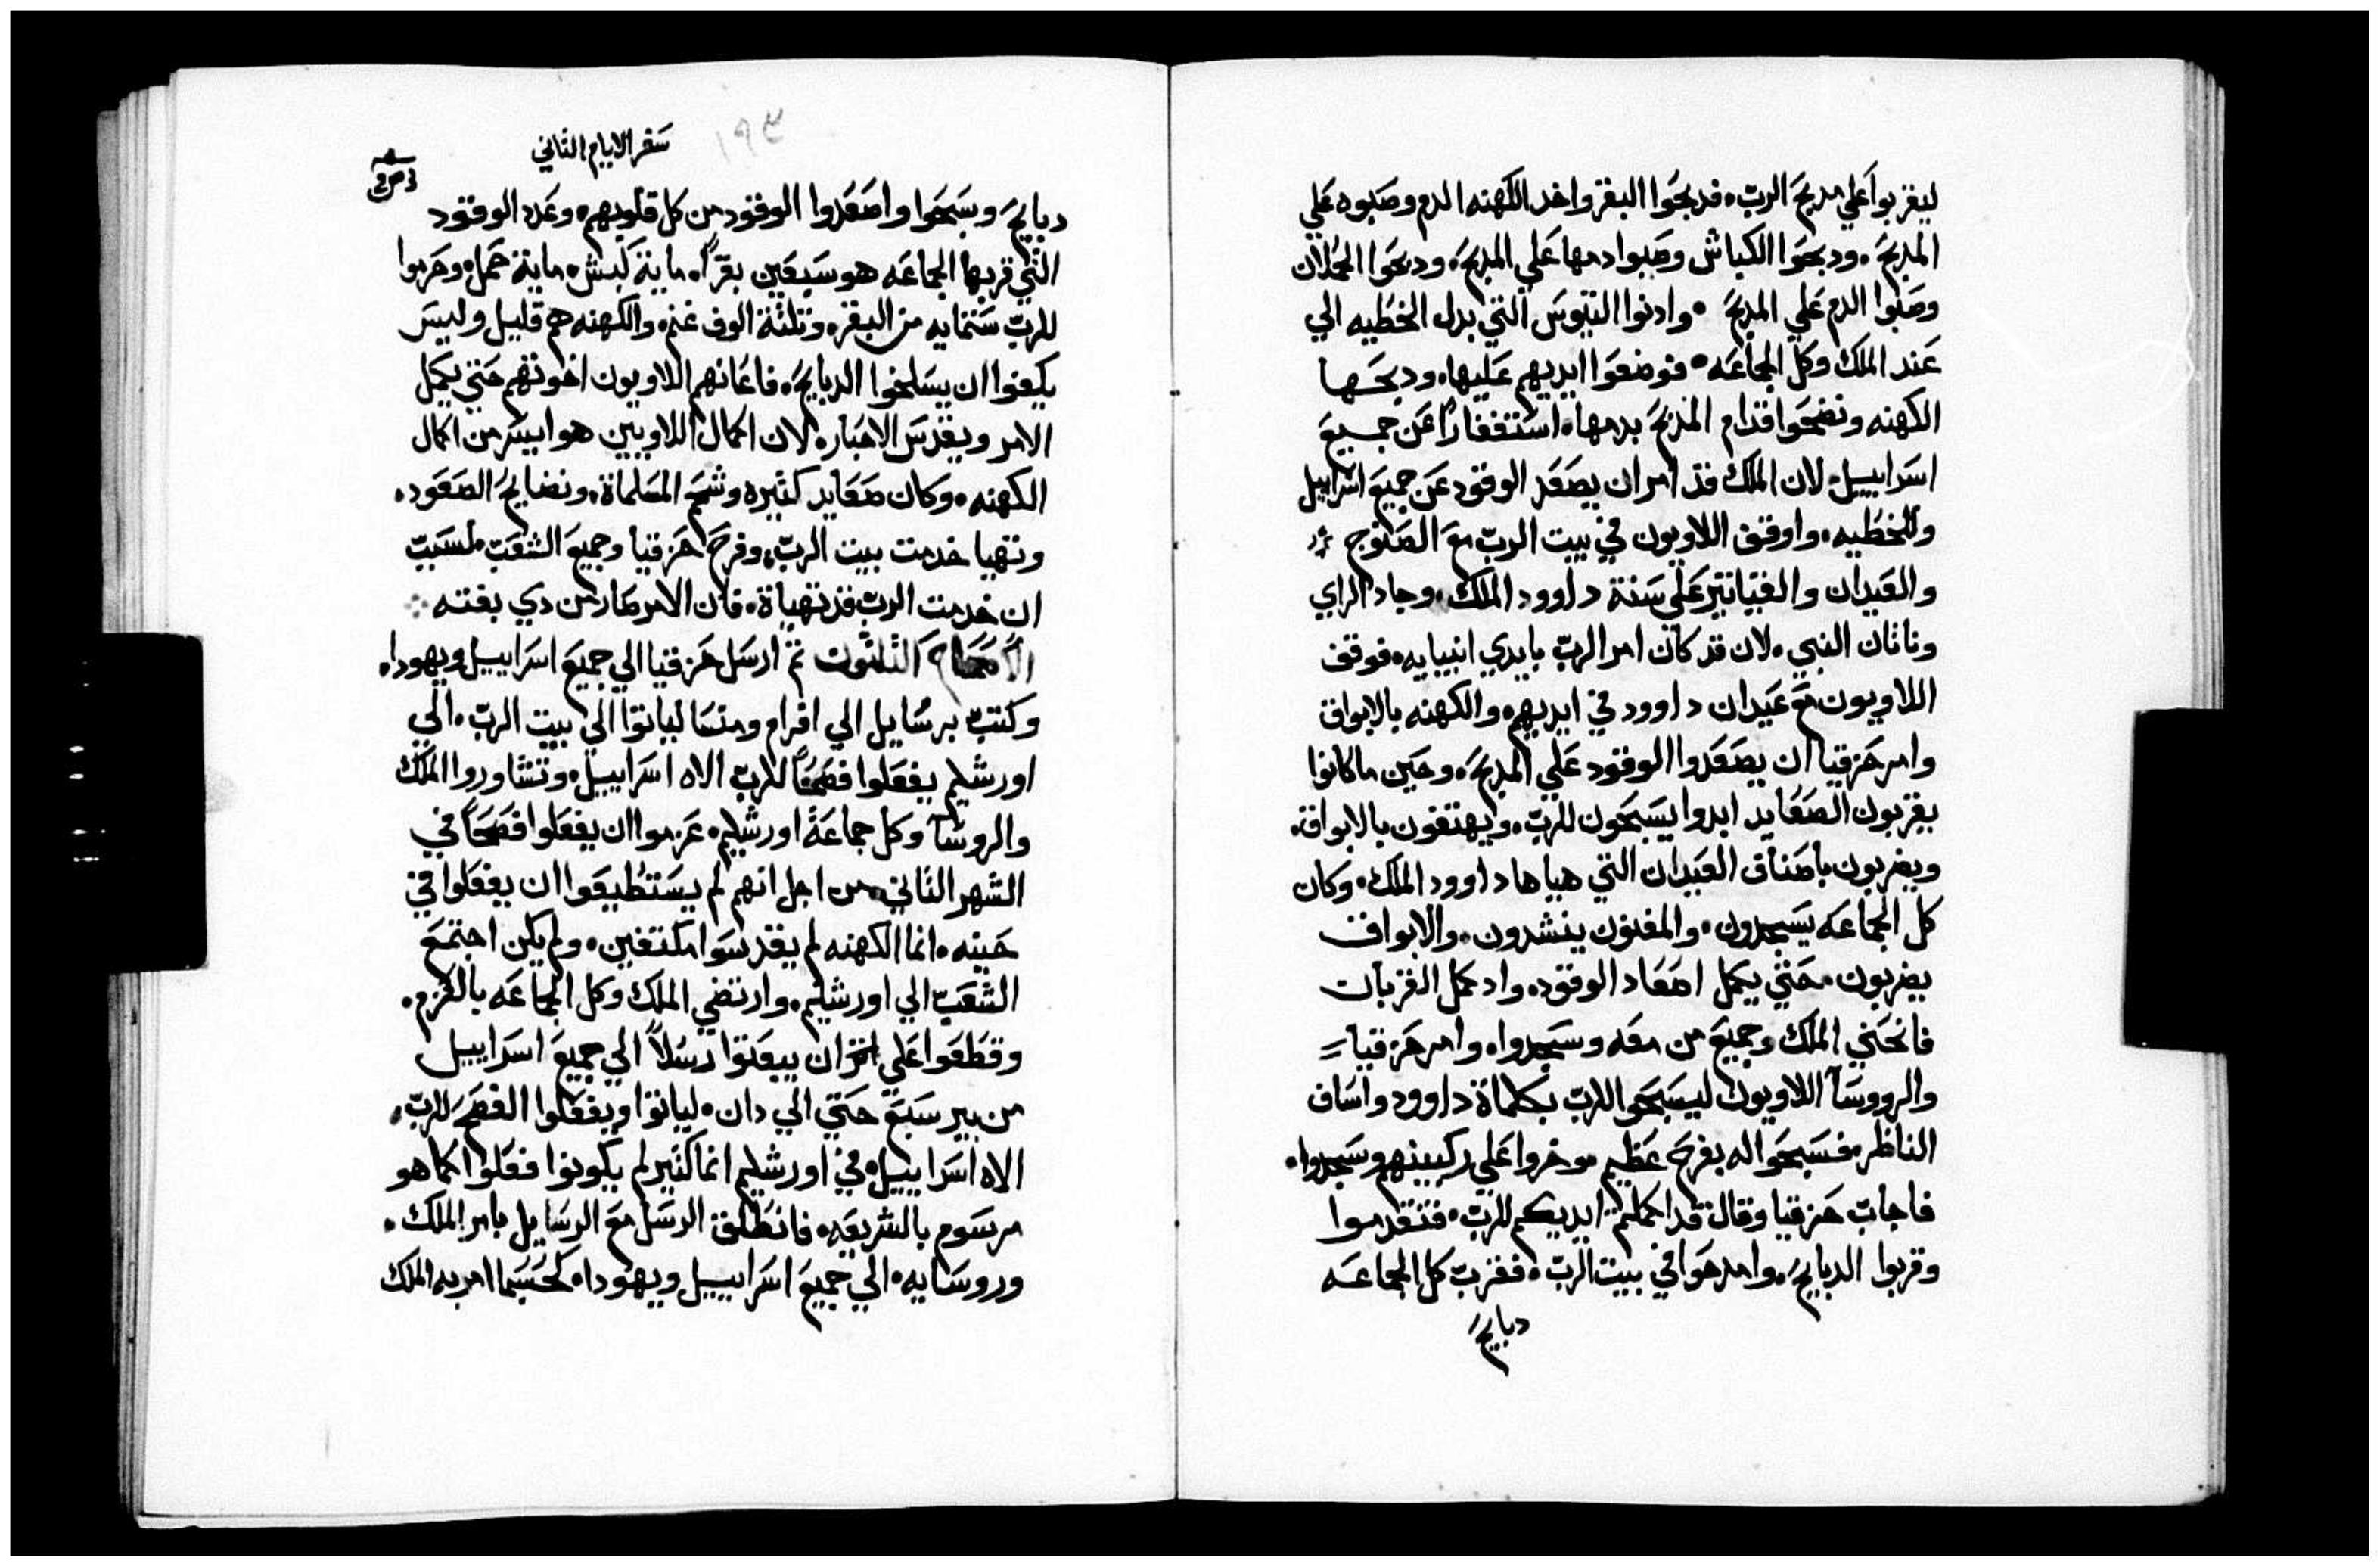 ليقربوا علي مدبح الربّ. فدبحوا البقر واخد الكهنه الدم وصبوه علي
المدبح. ودبحوا الكباش وصبوا دمها علي المدبح. ودبحوا الحملان
وصبوا الدم علي المدبح. وادنوا التيوس التي بدل الخطيه الي
عند الملك وكل الجماعه. فوضعوا ايديهم عليها. ودبحها
الكهنه ونضحوا قدام المدبح بدمها. استغفارًا عن جميع
اسراييل. لان الملك قد امر ان يصعد الوقود عن جميع اسراييل
وللخطيه. واوقف اللاويون في بيت الربّ مع الصنوج
والعيدان والقيانتير علي سنة داوود الملك. وجاد الراي
وناثان النبي. لان قد كان امر الربّ بايدي انبيايه. فوقف
اللاويون مع عيدان داوود في ايديهم. والكهنه بالابواق
وامر حزقيا ان يصعدوا الوقود علي المدبح. وحين ما كانوا
يقربون الصعايد ابدوا يسبحون للربّ. ويهتفون بالابواق.
ويضربون باصناف العيدان التي هياها داوود الملك. وكان
كل الجماعه يسجدون. والمغنون ينشدون. والابواق
يضربون. حتي يكمل اصعاد الوقود. واد كمل القربان
فانحني الملك وجميع من معه وسجدوا. وامر حزقيا
والرووسآ اللاويون ليسبحوا للربّ بكلماة داوود واساف
الناظر. فسبحوا له بفرح عظيم. وخروا علي ركبتهم وسجدوا.
فاجاب حزقيا وقال قد اكملتم ايديكم للربّ. فتقدموا
وقربوا الدبايح. وامدحوا في بيت الربّ. فقرّبت كل الجماعه
دبايح
سفر الايام الثاني
١٩٣
دبايح وسبحوا واصعدوا الوقود من كل قلوبهم. وعدد الوقود
التي قربها الجماعه هو سبعين بقرًا. ماية كبش. ماية حمل. وحرموا
للربّ ستمايه من البقر. وثلثة الوف غنم. والكهنه هم قليل وليس
يكفوا ان يسلخوا الدبايح. فاعانهم اللاويون اخوتهم حتي يكمل
الامر ويقدس الاحبار. لان اكمال اللاويين هو ايسر من اكمال
الكهنه. وكان صعايد كثيره وشحم المسلماة. ونضايح الصعود.
وتهيا خدمت بيت الربّ. وفرح حزقيا وجميع الشعبّ. لسببّ
ان خدمت الربّ قد تهياة. فان الامر صار من دي بغته
الاصحاح الثلثون ثم ارسل حزقيا الي جميع اسراييل ويهودا.
وكتب برسايل الي افرام ومنسا لياتوا الي بيت الربّ. الي
اورشليم يفعلوا فصحًا للربّ الاه اسراييل. وتشاوروا الملك
والروسآ وكل جماعة اورشليم. عزموا ان يفعلوا فصحًا في
الشهر الثاني. من اجل انهم لم يستطيعوا ان يفعلوا في
حينه. انما الكهنه لم يقدسوا مكتفين. ولم يكن اجتمع
الشعبّ الي اورشليم. وارتضي الملك وكل الجماعه بالعزم.
وقطعوا علي ان يبعثوا رسلاً الي جميع اسراييل
من بير سبع حتي الي دان. لياتوا ويفعلوا الفصح للربّ.
الاه اسراييل. في اورشليم انما كثير لم يكونوا فعلوا كما هو
مرسوم بالشريعه. فانطلق الرسل مع الرسايل بامر الملك.
وروسايه. الي جميع اسراييل ويهودا. كحسبما امر به الملك